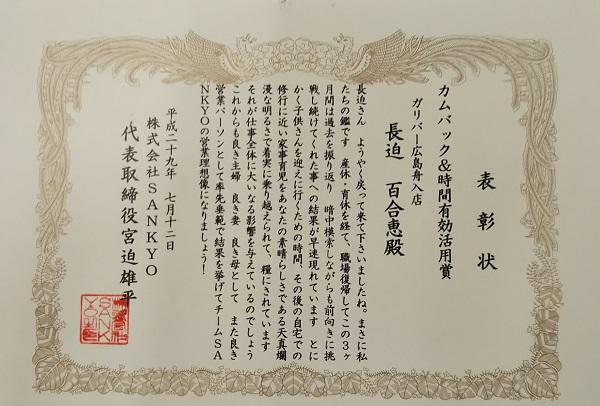 表彰状
カムバック&時間有効活用賞
ガリバー広島舟入店
長迫　百合恵殿
長迫さん　ようやく戻って来て下さいましたね。まさに私
たちの鑑です　産休・育休を経て、職場復帰してこの3ヶ
月間は過去を振り返り　暗中模索しながらも前向きに挑
戦し続けてくれた事への結果が早速現れています　とに
かく子供さんを迎えに行くための時間、その後の自宅での
修行に近い家事育児をあなたの素晴らしさである天真爛
漫な明るさで着実に乗り越えられて、糧にされています
それが仕事全体に大いなる影響を与えているのでしょう
これからも良き主婦　良き妻　良き母として　また良き
営業パーソンとして率先垂範で結果を挙げてチームSA
NKYOの営業理想像になりましょう！
平成二十九年　七月十二日
株式会社SANKYO
代表取締役宮迫雄平